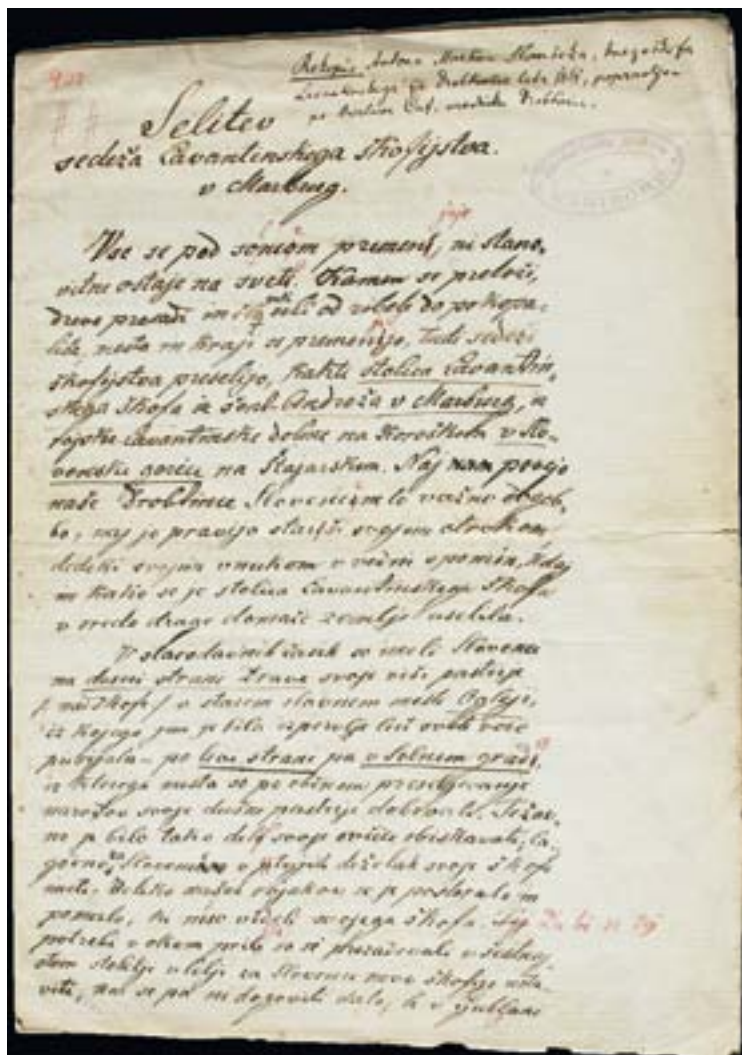 Rokopis Antona Martina Slomšeka, knezoškofa
Lavantinskega za Drobtince leta
po uredniku Drobtinc.
Selitev
sedeža Lavantinskega škofijstva
v Marburg.
Vse se pod soncom premeni, ni stano-
vitne ostaje na sveti. Kamen se preloži,
drevo presadi in seli od zibeli do pokopa-
lišč, mesta in kraji se premenijo, tudi sedeži
škofijstva preselijo, kakti stolica Lavantin-
skega škofa iz šent-Andreža v Marburg, iz
Lavantinske doline na Koroškem v Slo-
venske gorice na Štajarskem. Naj nam povejo
naše Drobtince Slovencem to važno dogod-
bo, naj jo pravijo starši svojem otrokom,
dedeki svojim vnukom v večni spomin, kdaj
in kako se je stolica Lavantinskega škofa
v sredo drage domače zemlje vselila.
V starodavnih časih so imeli Slovenci
na desni strani Drave svoje više pastirje
(nadškofe) v starem slavnem mesti Ogleji,
iz kojega jim je bila luč svete vere
prisijala – po levi strani pa v Solnem gradi,
iz kterega mesta so po
narodov svoje dušne pastirje dobivali. Težav-
no je bilo tako daleč svoje ovčice obiskavati,
Slovencom v ptujih deželah svoje škofe
imeti. Veliko vojakov se je postaralo in
pomrlo, ki niso vidili svojega škofa. Tej
potrebi v okom priti so si prizadevali v šestnaj-
stem stoletji v Celji za Slovence novo škofijo usta-
viti, kar se pa ni dogoditi dalo, le v Ljubljani